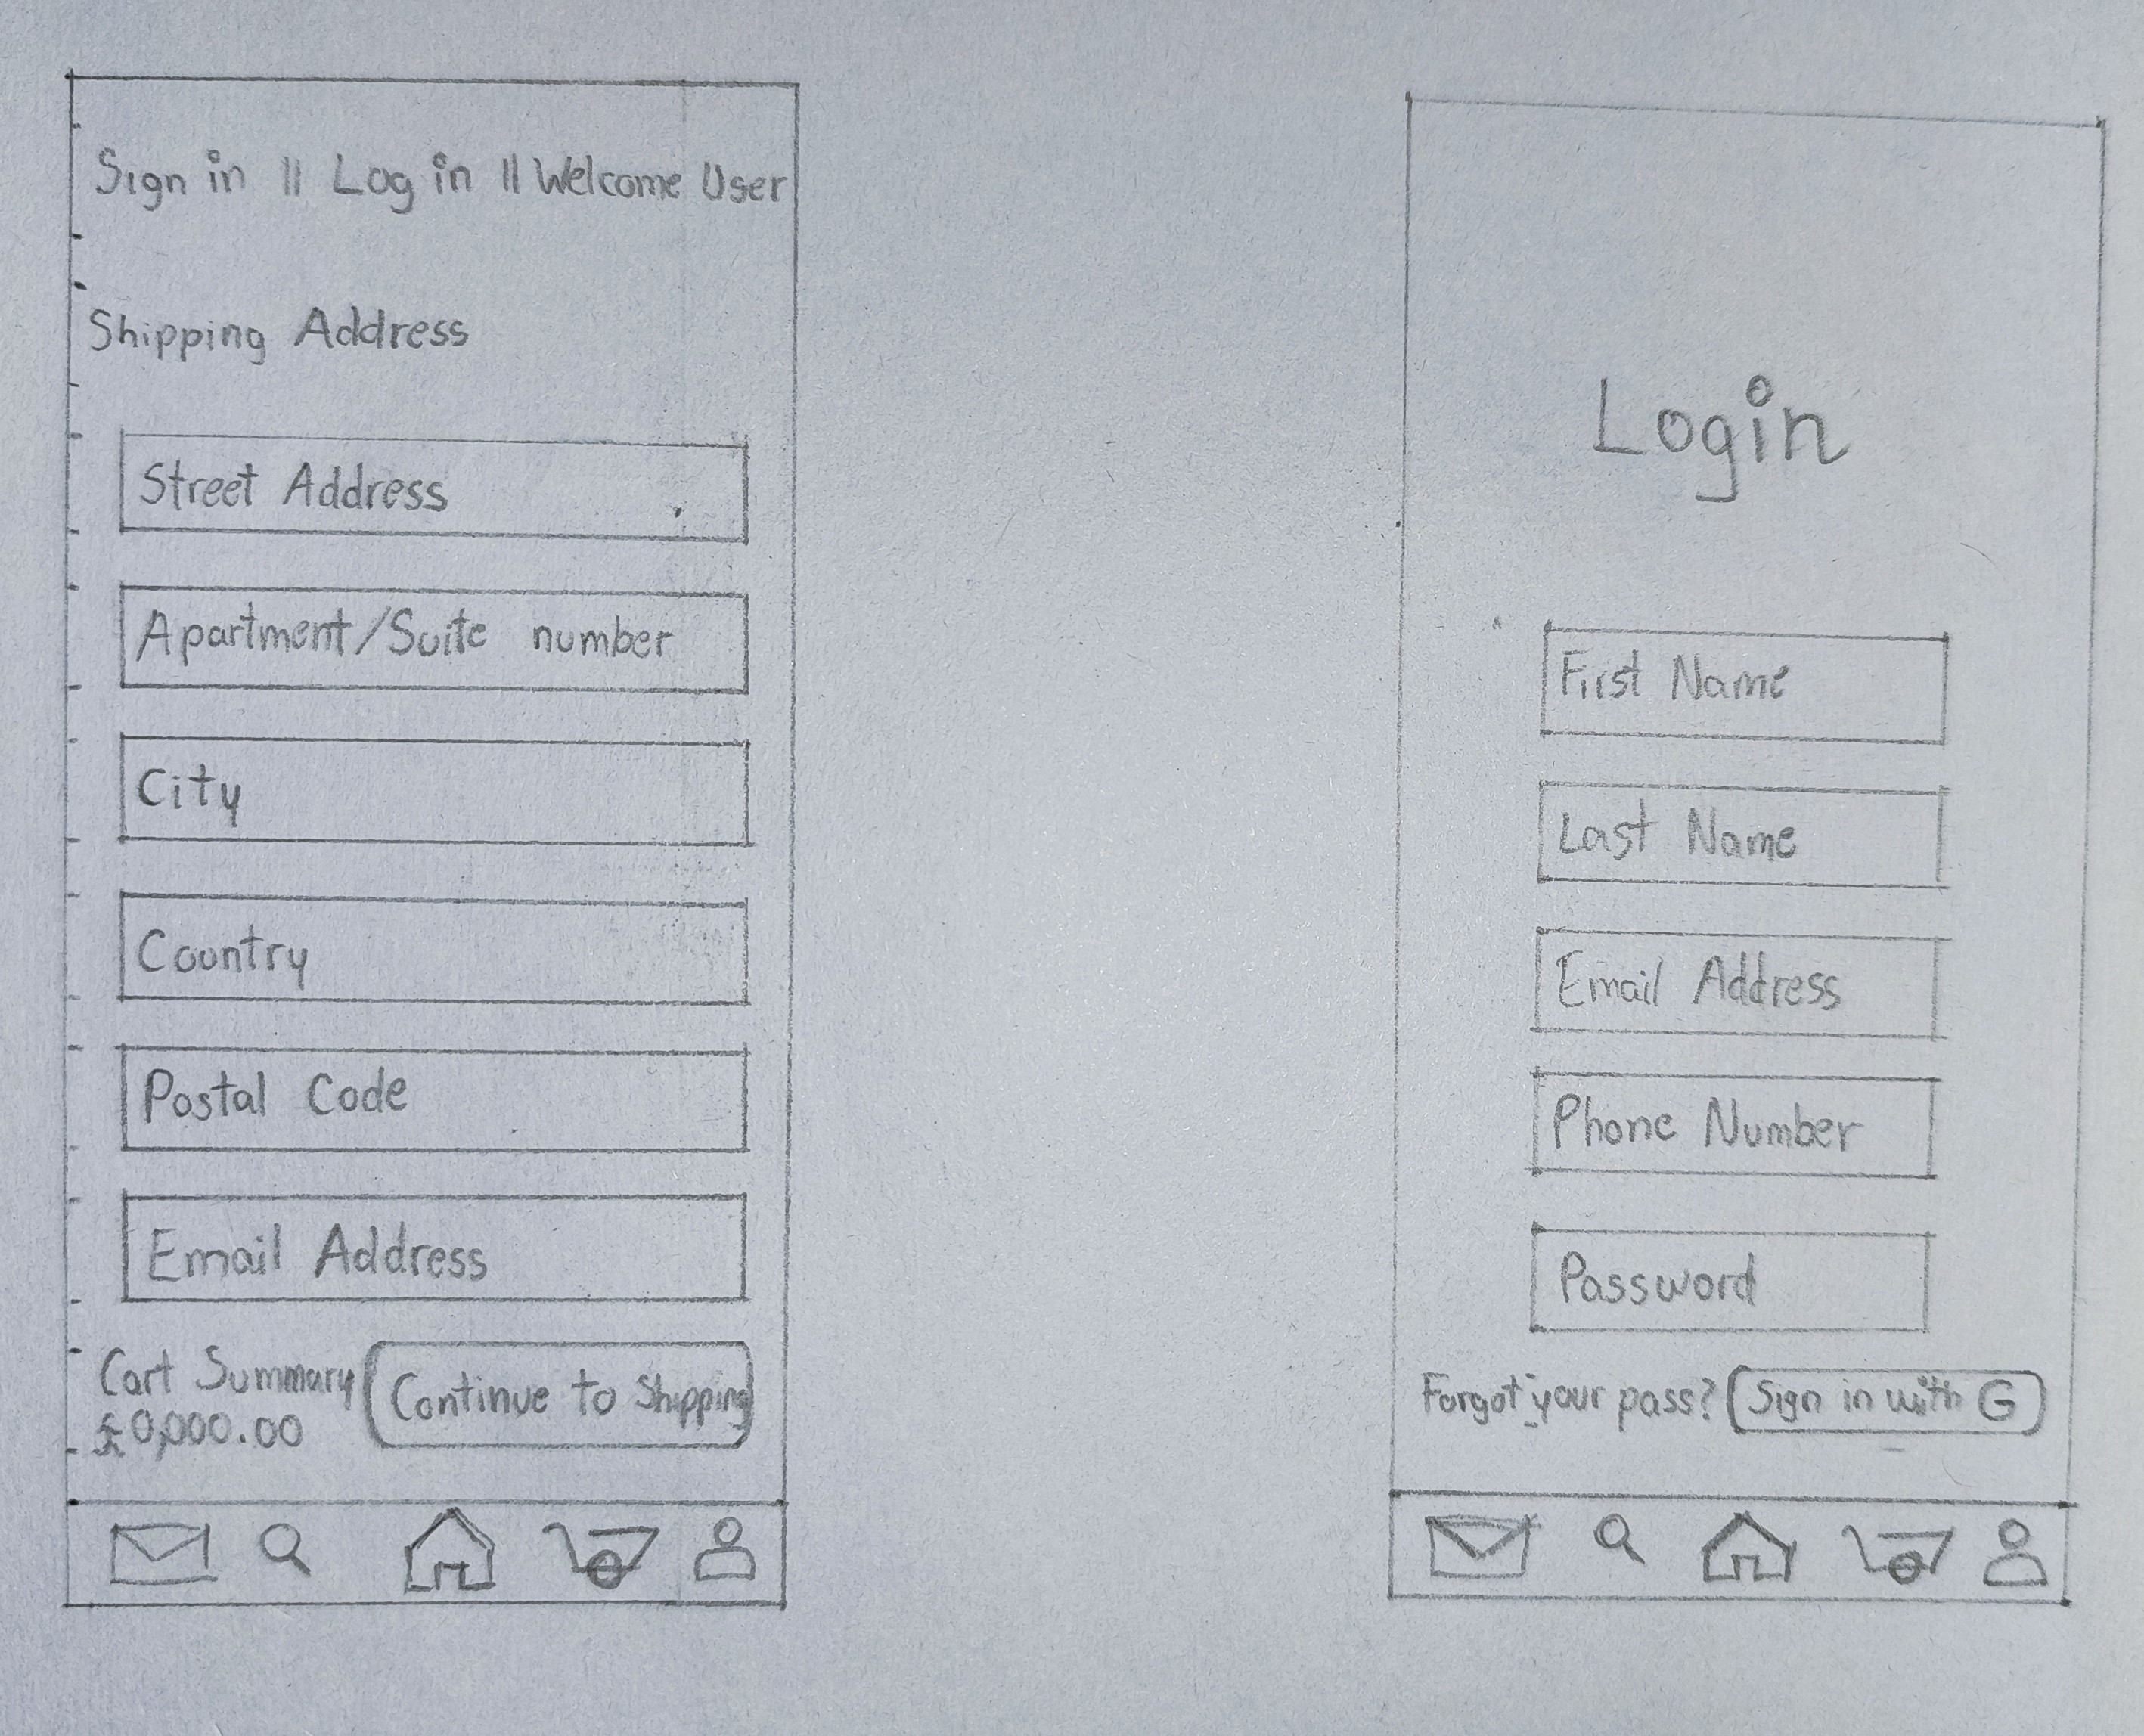 Sign in || Log in || Welcome User
Shipping Address
Street Address
Apartment/Suite number
City
Country
Postal Code
Email Address
Cart Summary
0,000.00
Continue to Shipping
Login
First Name
Last Name
Email Address
Phone Number
Password
Forgot your pass?
Sign in with G